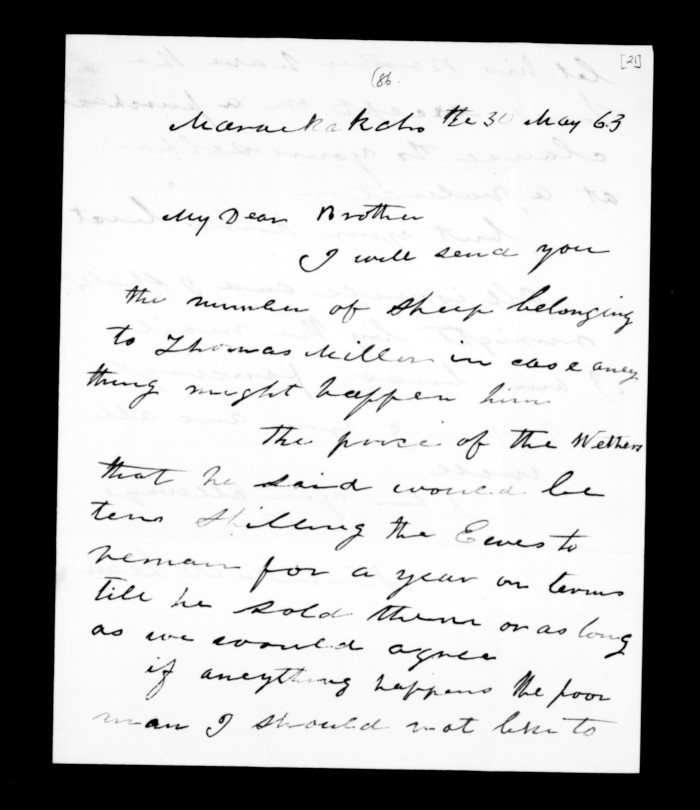 [21]
(86.
Maraekakaho the 30 May 63
My Dear Brother
I will send you
the number of sheep belonging
to Thomas Miller in case aney
thing might happen him
the price of the Wethers
that he said would be
tenn Shilling the Ewes to
remain for a year on terms
till he sold them or as long
as we would agree
if aneything happens the poor
man I should not like to